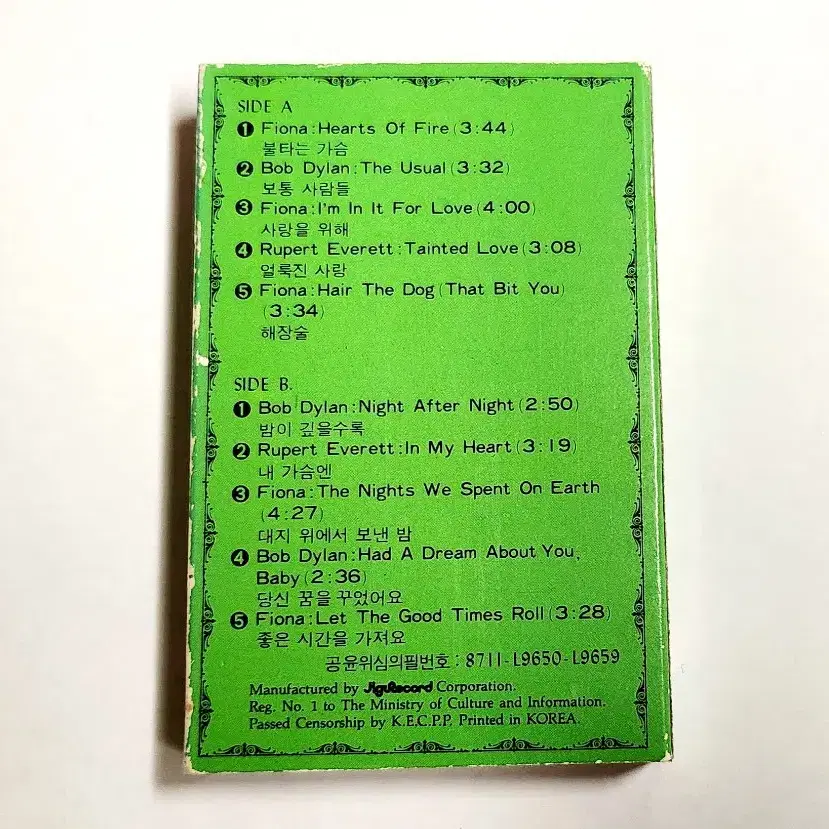 SIDE A
❶ Fiona:Hearts Of Fire(3:44)
불타는 가슴
❷ Bob Dylan:The Usual(3:32)
보통 사람들
❸ Fiona:I'm In It For Love(4:00)
사랑을 위해
❹ Rupert Everett:Tainted Love(3:08)
얼룩진 사랑
❺ Fiona:Hair The Dog(That Bit You)
(3:34)
해장술
SIDE B.
❶ Bob Dylan:Night After Night(2:50)
밤이 깊을수록
❷ Rupert Everett:In My Heart(3:19)
내 가슴엔
❸ Fiona:The Nights We Spent On Earth
(4:27)
대지 위에서 보낸 밤
❹ Bob Dylan:Had A Dream About You,
Baby(2:36)
당신 꿈을 꾸었어요
❺ Fiona:Let The Good Times Roll(3:28)
좋은 시간을 가져요
공윤위심의필번호:8711-L9650-L9659
Manufactured by JiguRecord Corporation.
Reg. No. 1 to The Ministry of Culture and Information.
Passed Censorship by K.E.C.P.P. Printed in KOREA.